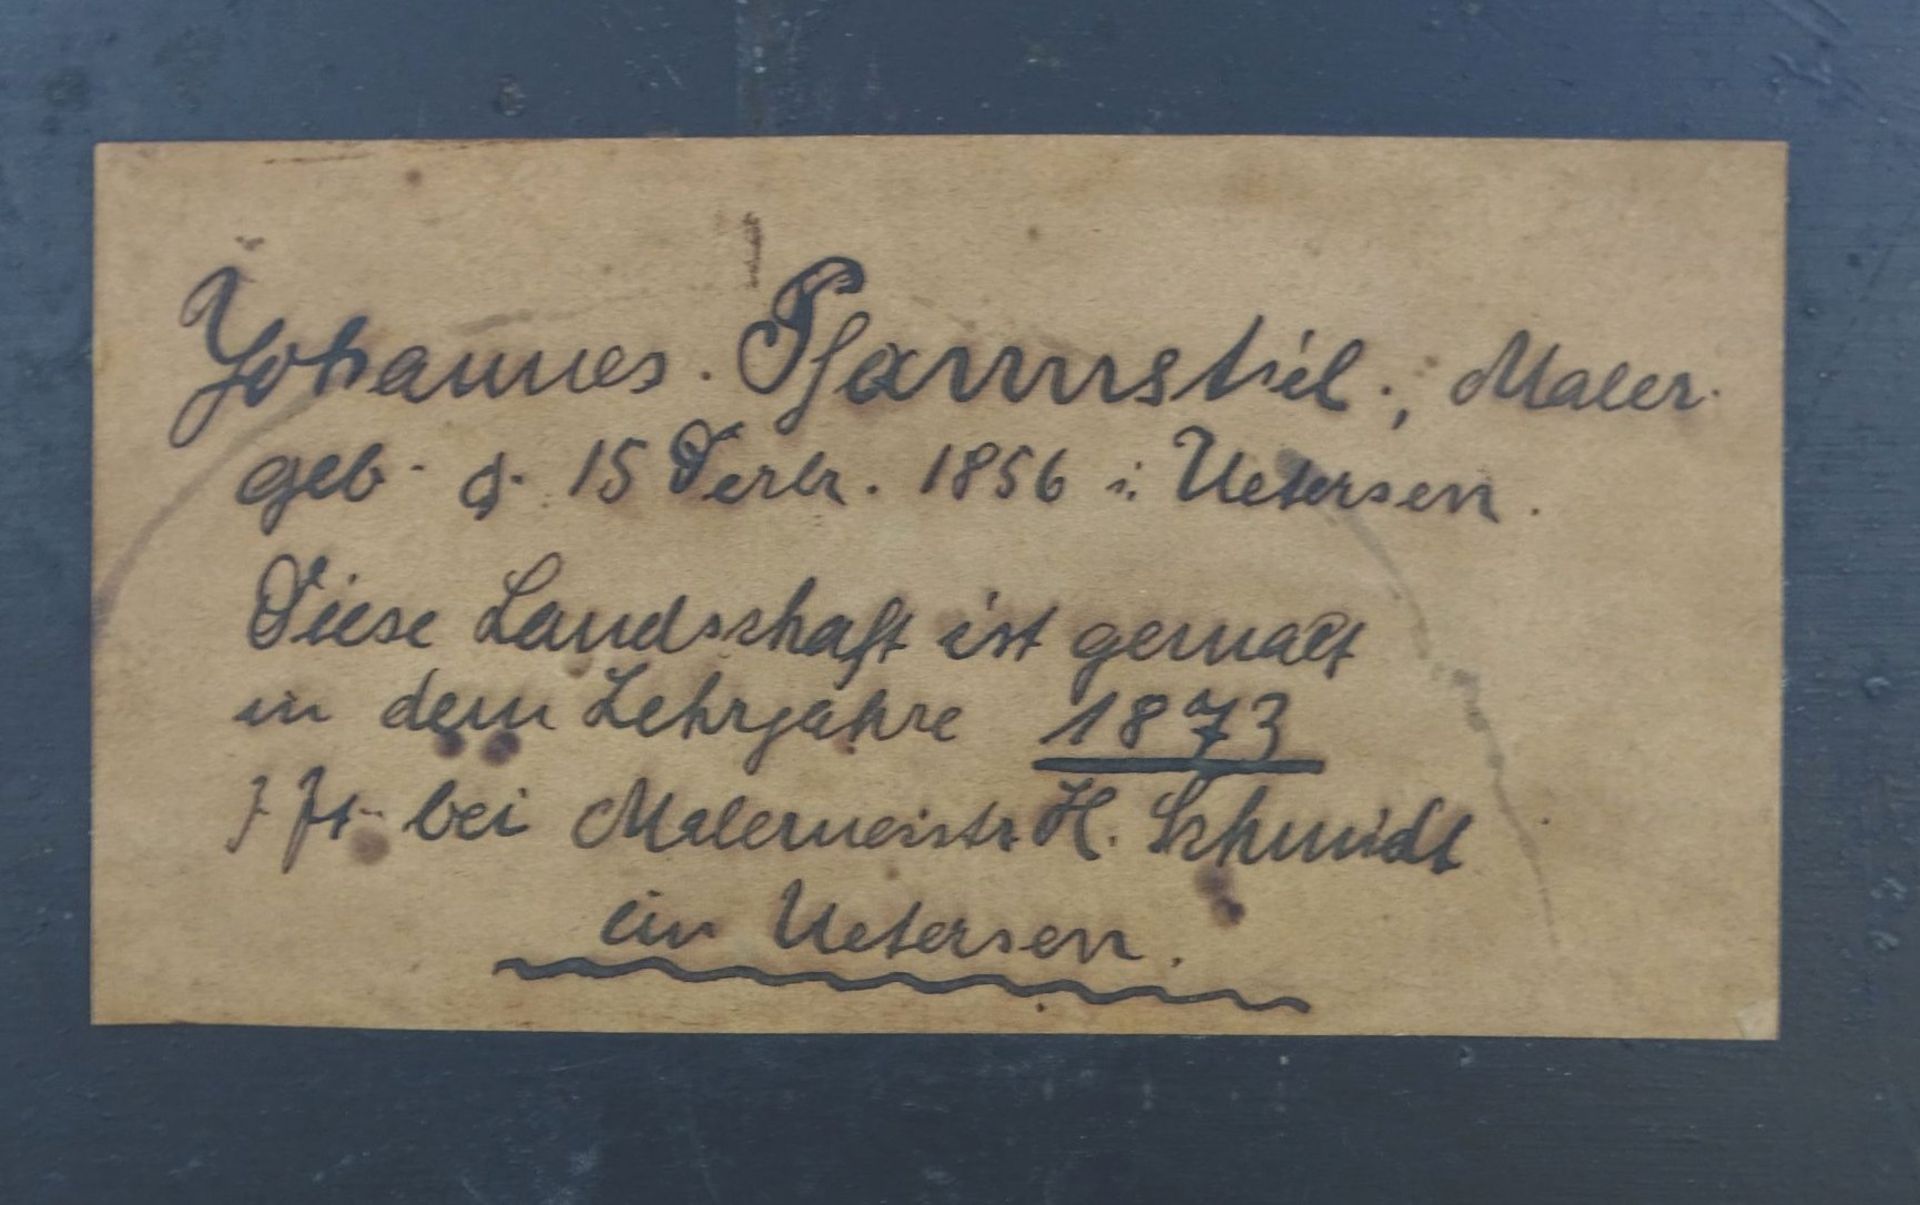 Johannes. Pfannstiel., Maler.
geb. d. 15 Dezbr. 1856 i. Uetersen.
Diese Landschaft ist gemalt
in dem Lehrjahre 1873
bei Malermeistr H. Schmidt
in Uetersen.